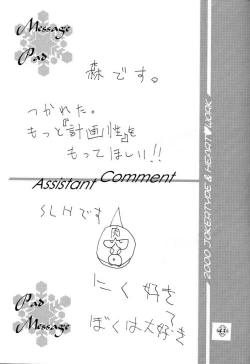 Message
Pad
森です。
つかれた。
もっと『計画性』を
もってほしい!!
Assistant Comment
SLHです
肉
にく好き?
ぼくは大好き
Pad
Message
2000 JOKERTYPE & HENTAI♥WORK